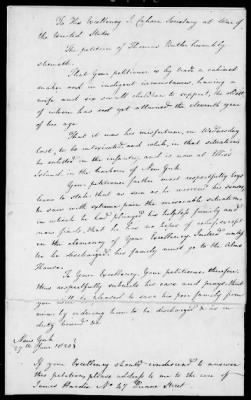 To His Excellency J. Calhoun Secretary at War of
the United States
The petition of Thomas Ruth humbly
sheweth.
That Your petitioner is by trade a cabinet
maker and in indigent circumstances, having a
wife and six small children to support, the oldest
of whom has not yet attained the eleventh year
of her age.
That it was his misfortune, on Wednesday
last, to be intoxicated and while, in that situation
he enlisted in the infantry, and is now at Ellis's
Island in the harbour of New York.
Your petitioner further most respectfully begs
leave to state that as soon as he recovered his senses,
he saw with extreme pain the miserable situation
in which he had plunged his helpless family and
now finds, that he has no hopes of relief except
in the clemency of Your Excellency. Indeed unless
he be discharged, his family must go to the Alms
House.
To Your Excellency, Your petitioner, therefore,
thus respectfully submits his case and prays that
you will be pleased to save his poor family from
ruin by ordering him to be discharged & as in
duty bound &c.
New York
27th June 1820
If your Excellency should condescend to answer
this petition, please address to me to the care of
James Hardie No. 47 Duane Street.